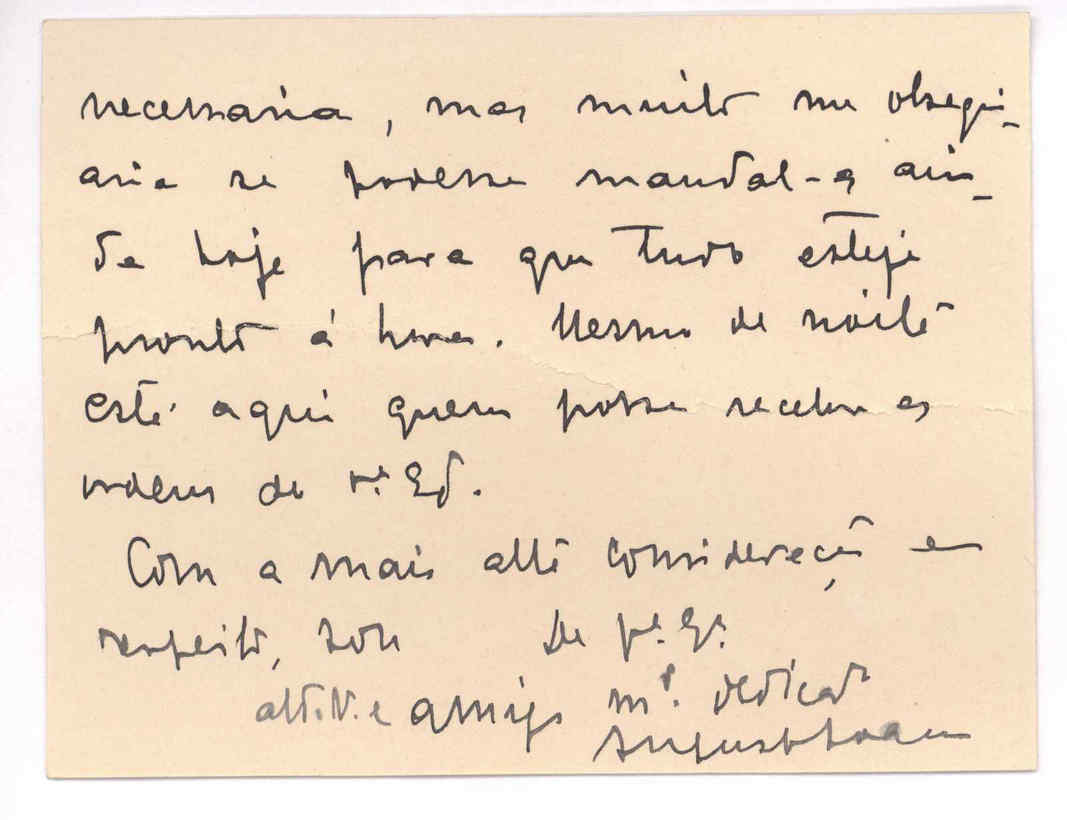 necessaria, mas muito me obsequi-
aria se podesse mandal-a ain-
da hoje para que tudo esteja
pronto á hora. Mesmo de noite
está aqui quem possa receber as
ordens de V.ª Ex.
Com a mais alta consideração e
respeito, sou De V.ª Ex.ª
att.º V.e amigo m.to dedicado
Augusto Soares